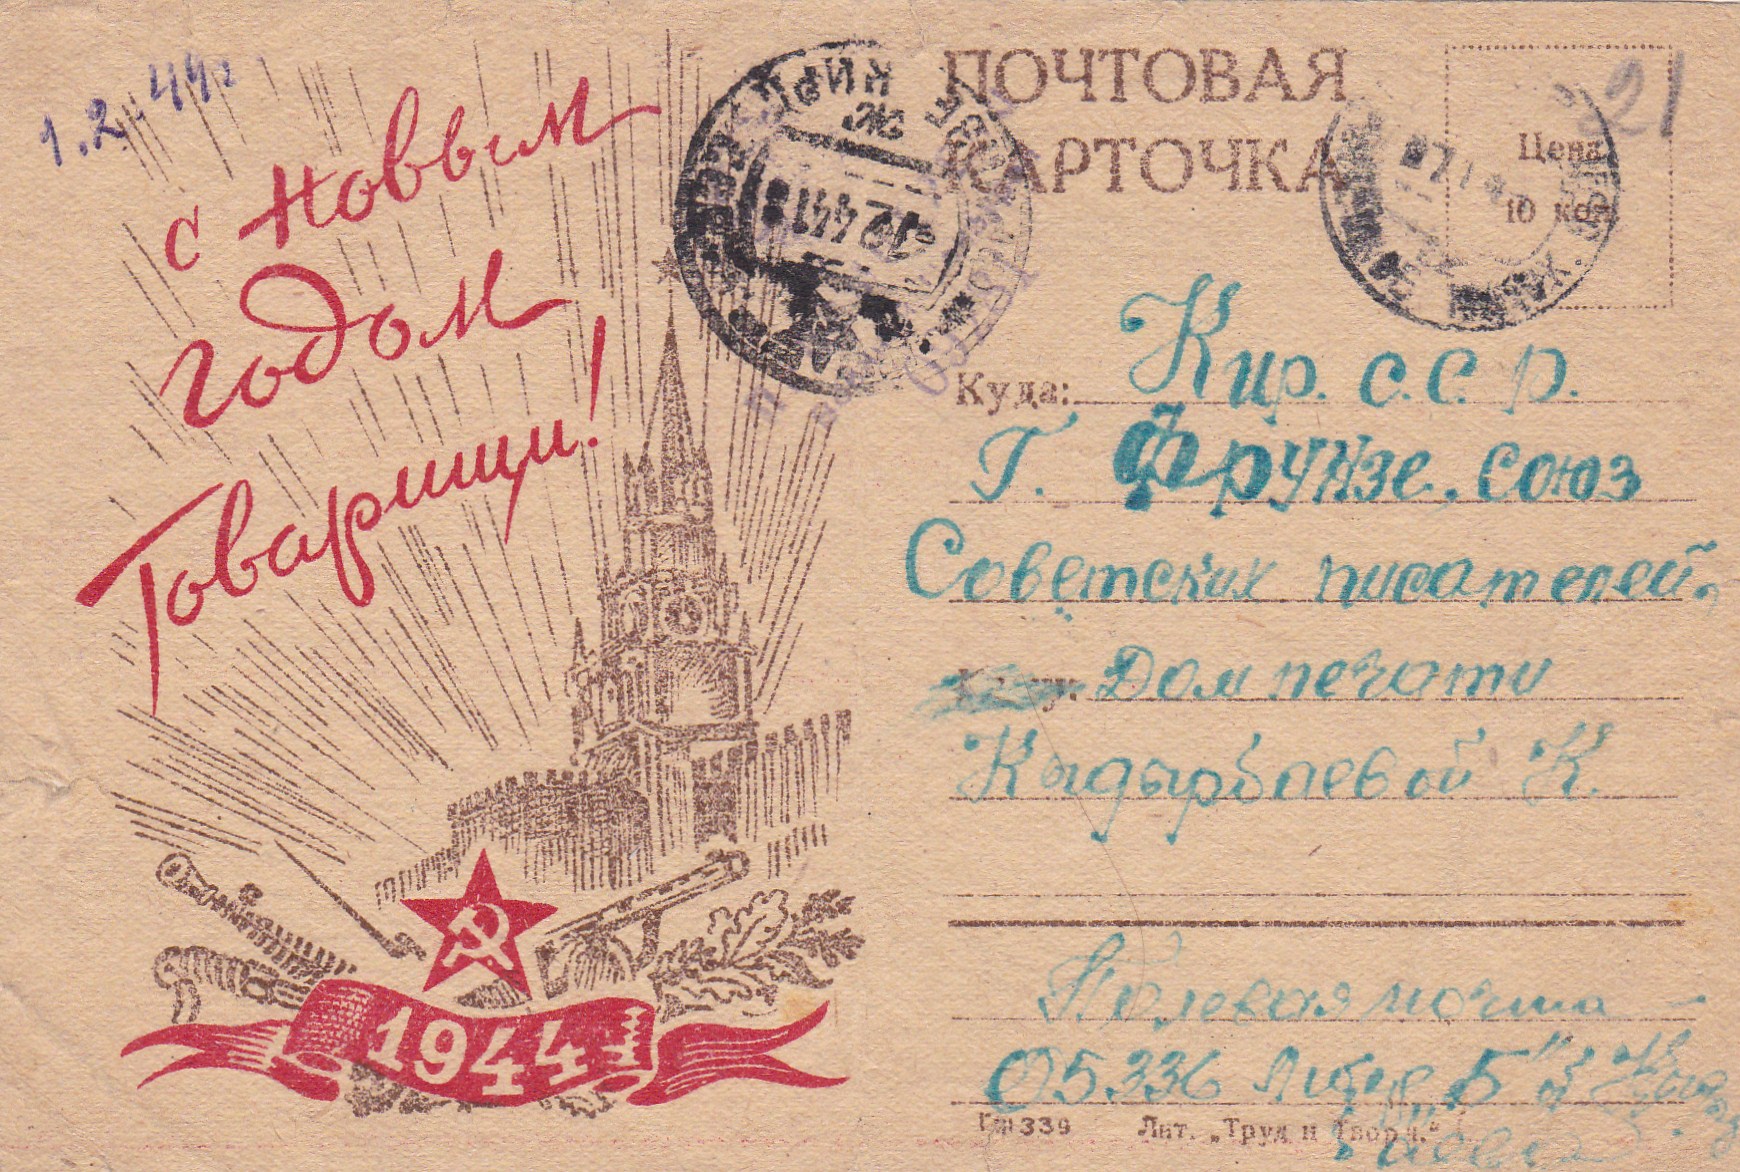 1.2.44г.
с Новым
годом
Товарищи!
1944
ПОЧТОВАЯ
КАРТОЧКА
21
Цена
10 коп.
Куда: Кир. с.с.р.
г. Фрунзе. союз
Советских писателей,
Дом печати
Кыдырбаевой К.
Полевая почта
05336 литер "Б"
339 Лит. „Труд и Творч."